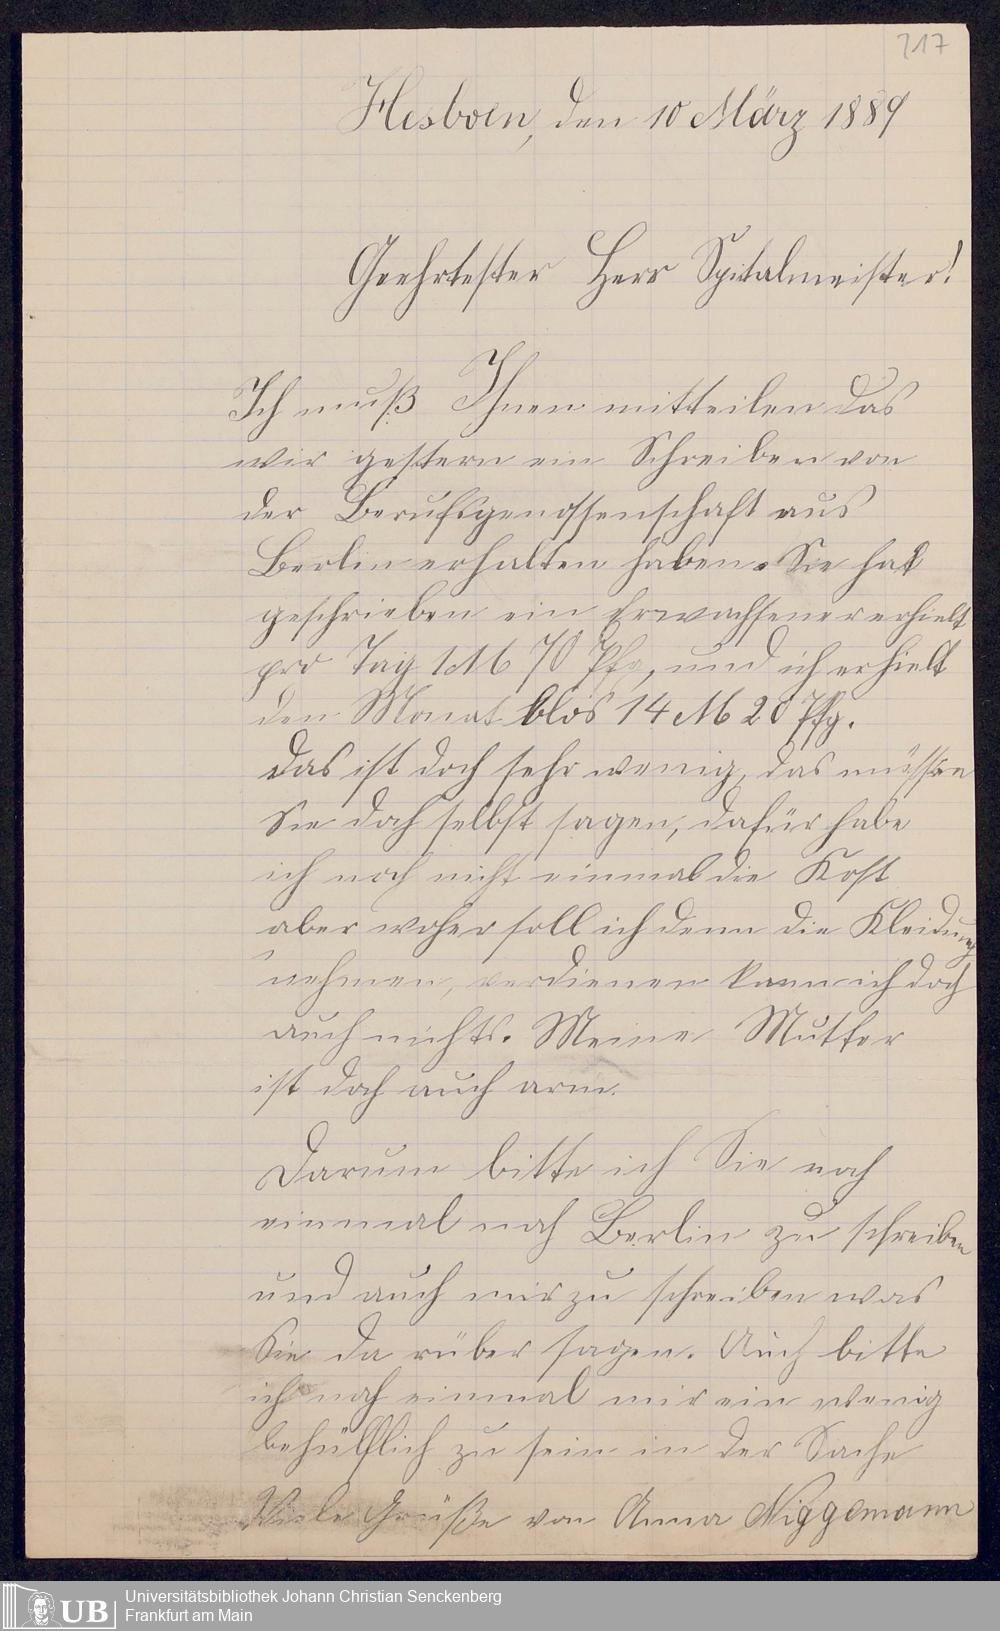 217
Hesborn, den 10 März 1889
Geehrtester Herr Spitalmeister!
Ich muß Ihnen mitteilen das
wir gestern ein Schreiben von
der Berufsgenossenschaft aus
Berlin erhalten haben. Sie hat
geschrieben ein Erwachsener erhielt
pro Tag 1 M 70 Pfg, und ich erhielt
den Monat blos 14 M 20 Pfg.
Das ist doch sehr wenig, das müssen
Sie doch selbst sagen, dafür habe
ich noch nicht einmal die Kost
aber woher soll ich denn die Kleidung
nehmen, verdienen kann ich doch
auch nichts. Meine Mutter
ist doch auch arm.
Darum bitte ich Sie noch
einmal nach Berlin zu schreiben
und auch mir zu schreiben was
Sie da rüber sagen. Auch bitte
ich noch einmal mir ein wenig
behülflich zu sein in der Sache
Viele Grüße von Anna Niggemann
UB
Universitätsbibliothek Johann Christian Senckenberg
Frankfurt am Main